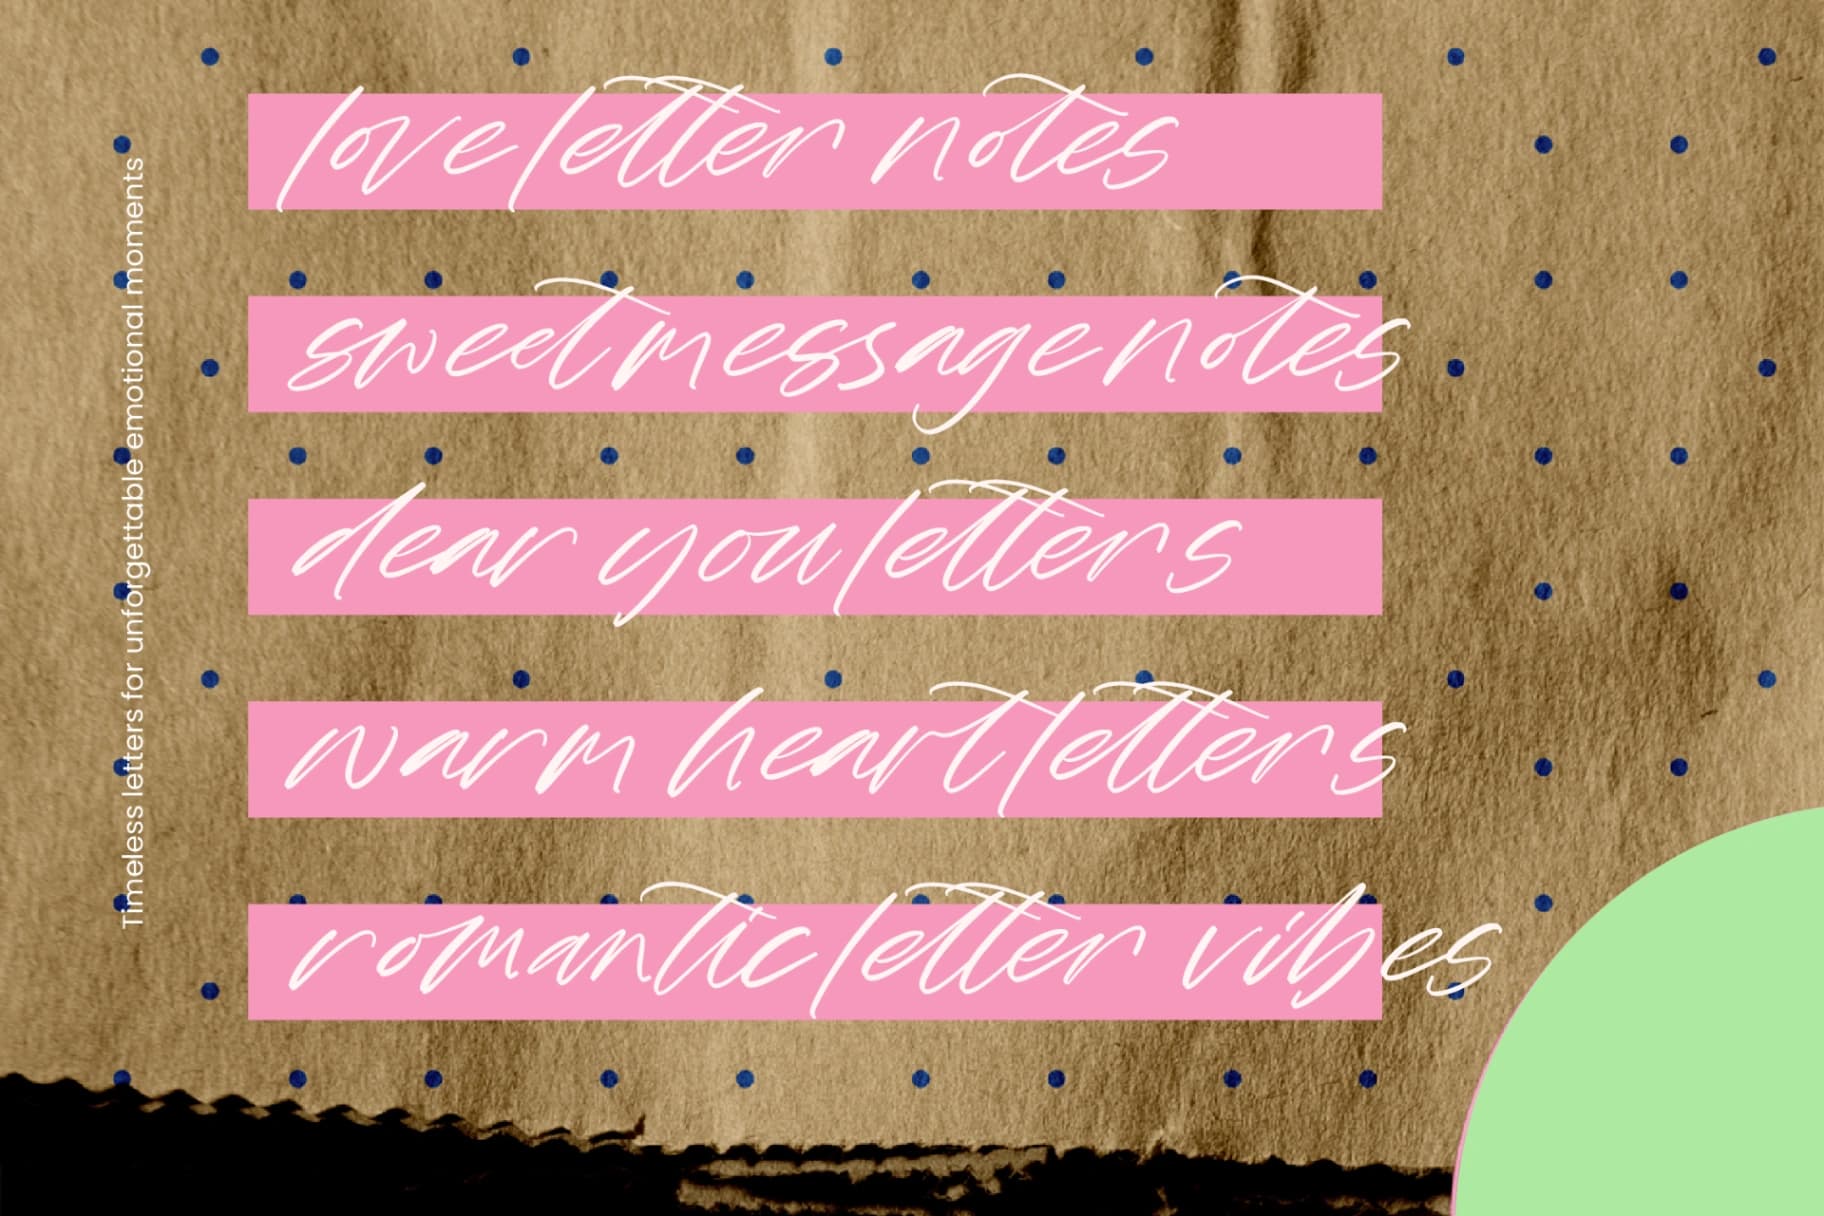 love letter notes
sweet message notes
dear you letters
warm heart letters
romantic letter vibes
Timeless letters for unforgettable emotional moments